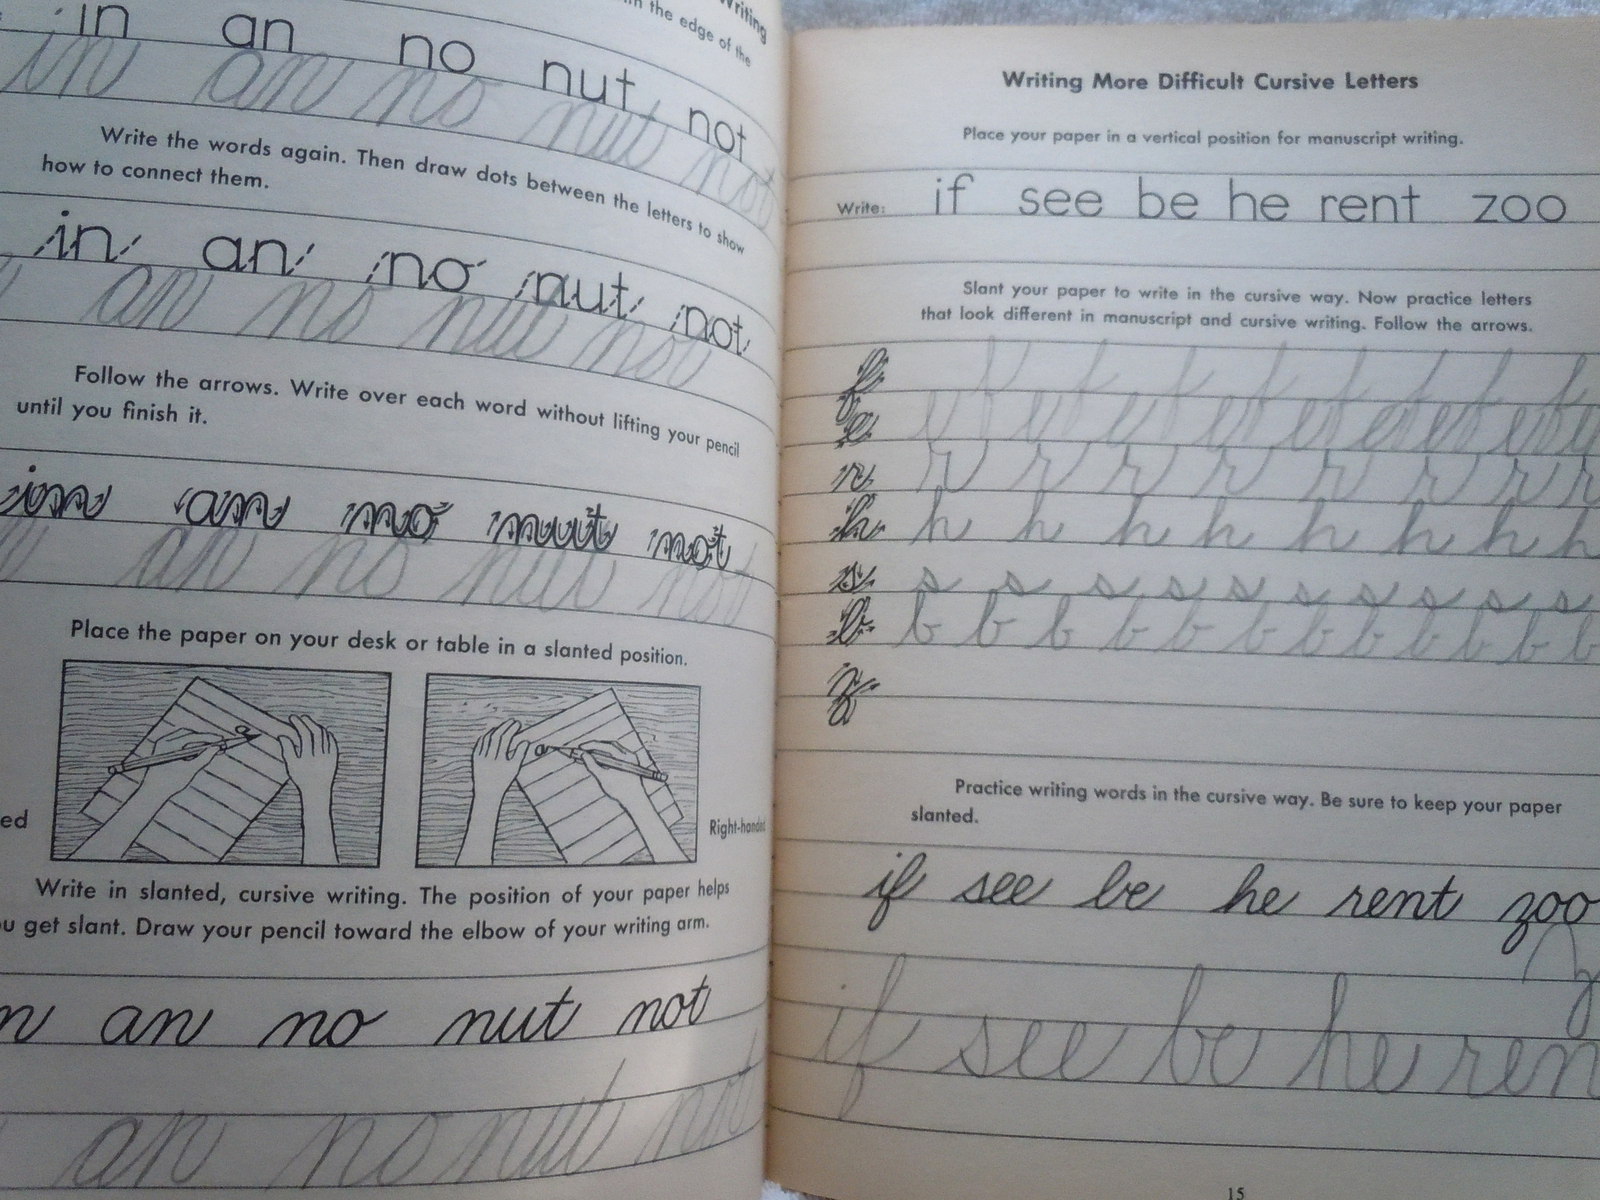 Writing
in the edge of the
in an no nut not
in an no nut not
Write the words again. Then draw dots between the letters to show
how to connect them.
in an no nut not
an no nut not
Follow the arrows. Write over each word without lifting your pencil
until you finish it.
in an no nut not
an no nut not
Place the paper on your desk or table in a slanted position.
a a
ed
Right-handed
Write in slanted, cursive writing. The position of your paper helps
u get slant. Draw your pencil toward the elbow of your writing arm.
n an no nut not
an no nut not
Writing More Difficult Cursive Letters
Place your paper in a vertical position for manuscript writing.
Write: if see be he rent zoo
Slant your paper to write in the cursive way. Now practice letters
that look different in manuscript and cursive writing. Follow the arrows.
f
e
r r r r r r r r r
h h h h h h h h h
s s s s s s s s s s s
b b b b b b b b b b b b
z
Practice writing words in the cursive way. Be sure to keep your paper
slanted.
if see be he rent zoo
if see be he ren
15